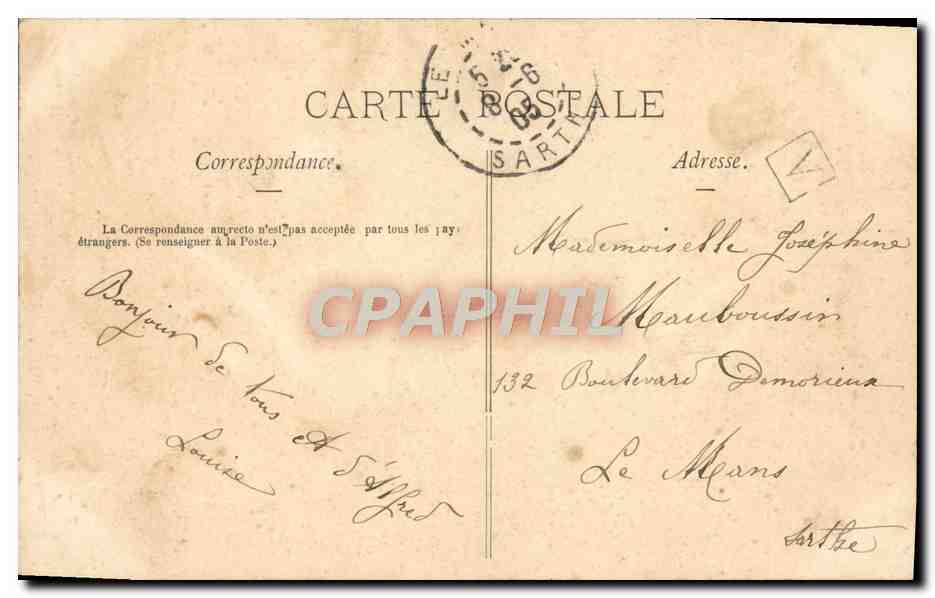 CARTE POSTALE
LE
5
8 -6
05
SARTHE
Correspondance.
Adresse.
V
La Correspondance au recto n'est pas acceptée par tous les pays
étrangers. (Se renseigner à la Poste.)
Bonjour de tous et d'Alfred
Louise
Mademoiselle Joséphine
Mauboussin
132 Boulevard Demorieux
Le Mans
Sarthe
CPAPHIL